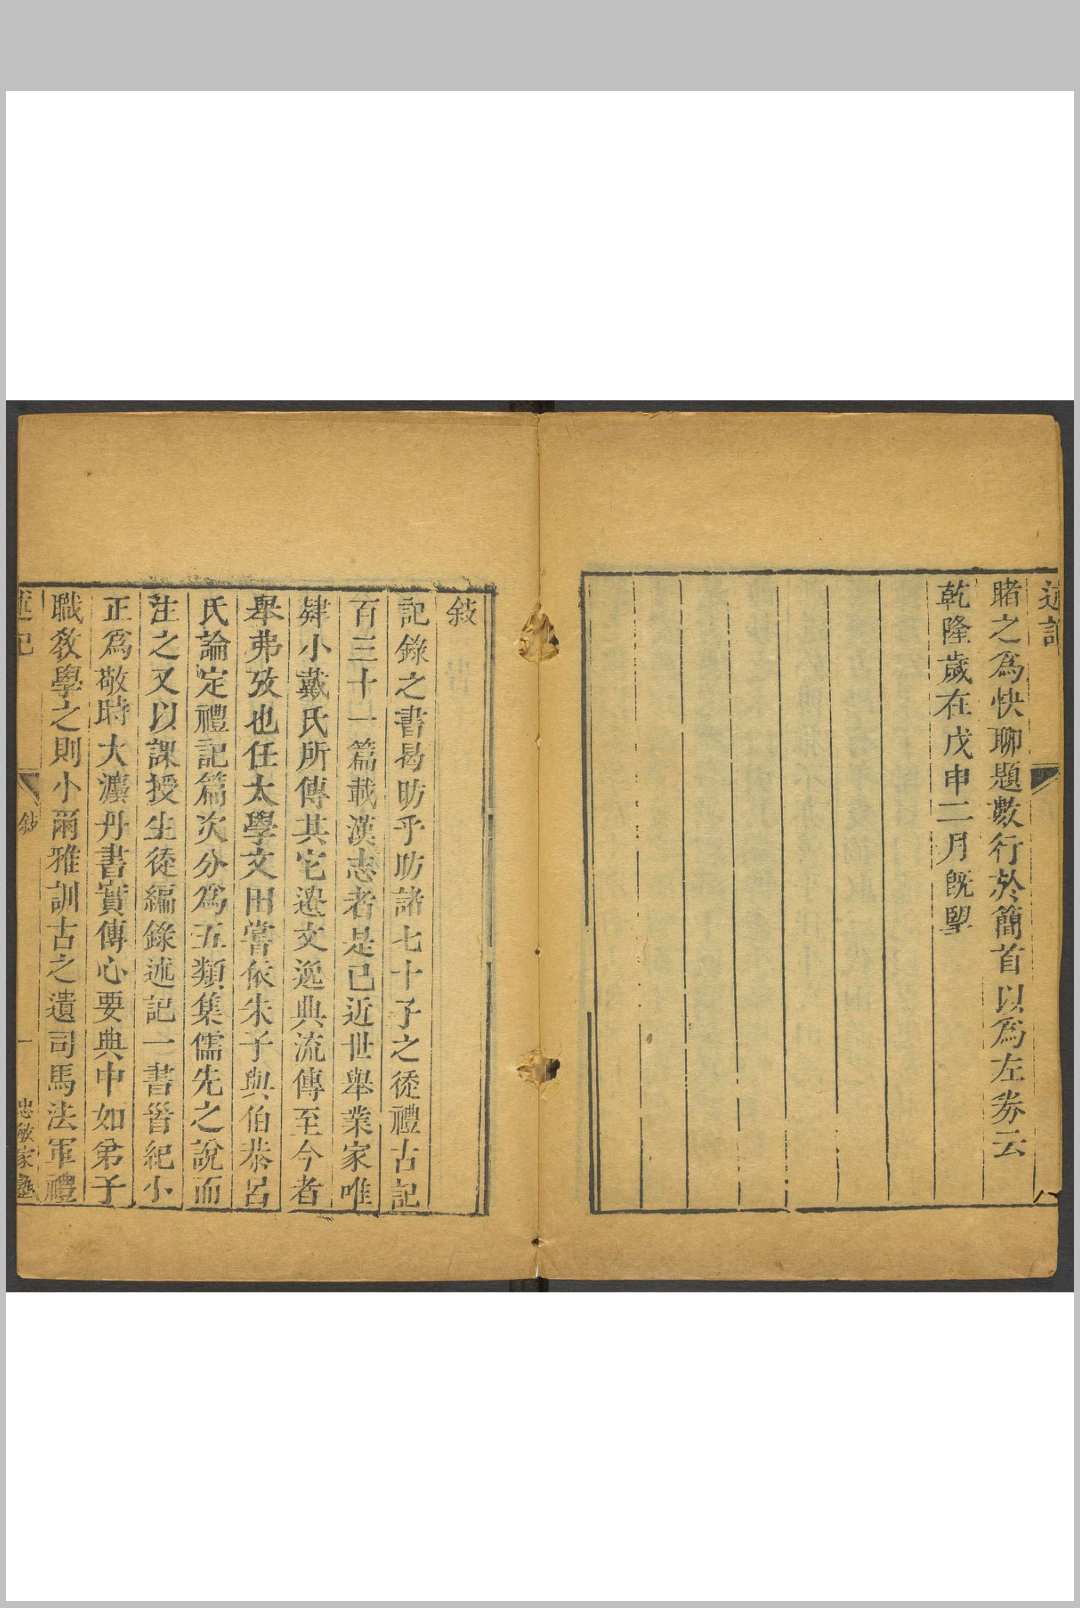 述記
睹之爲快聊題數行於簡首以爲左券云
乾隆歲在戊申二月旣望
敍
記錄之書曷昉乎昉諸七十子之徒禮古記
百三十一篇載漢志者是已近世舉業家唯
肄小戴氏所傳其它遺文逸典流傳至今者
舉弗攷也任太學文田嘗依朱子與伯恭呂
氏論定禮記篇次分爲五類集儒先之說而
注之又以課授生徒編錄述記一書晉紀小
正爲敬時大灋丹書實傳心要典中如弟子
職敎學之則小爾雅訓古之遺司馬法軍禮
述記
敍
一
忠敏家塾